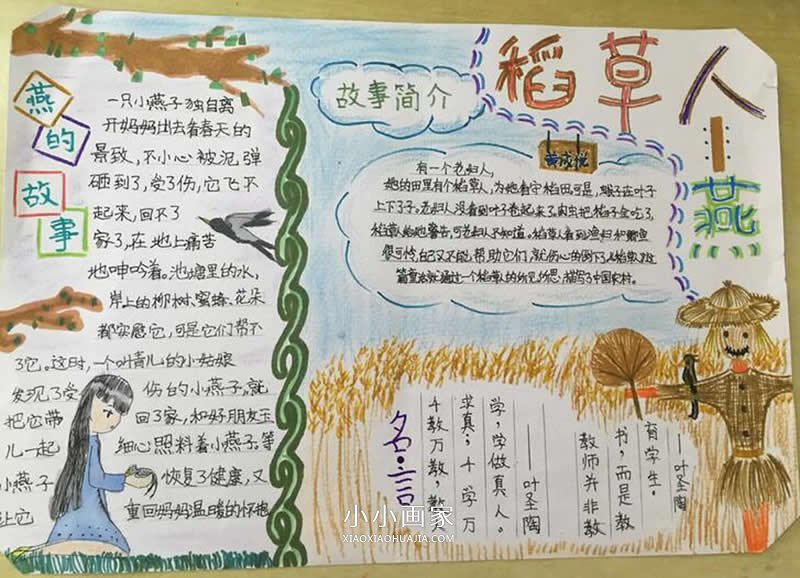 稻草人
燕
燕的故事
一只小燕子独自离
开妈妈出去看春天的
景致，不小心被泥弹
砸到了，受了伤，它飞不
起来，回不了
家了，在地上痛苦
地呻吟着。池塘里的水，
岸上的柳树、蜜蜂、花朵
都实感它，可是它们帮不
了它。这时，一个叫青儿的小姑娘
发现了受伤的小燕子，就
把它带回了家，和好朋友玉
儿一起细心照料着小燕子，等
小燕子恢复了健康，又
让它重回妈妈温暖的怀抱
故事简介
有一个老妇人，
她的田里有个稻草人，为她看守稻田可是，蛾子在叶子
上下了子。老妇人没看到叶子卷起来了。害虫把稻子全吃了，
稻草人给她警告，可老妇人不知道。稻草人看到渔妇和鲫鱼
很可怜，自己又不能帮助它们，就伤心的倒下了
篇童话就通过一个稻草人的所见所思，描写了中国农村。
名言
千教万教，教人
求真；千学万
学，学做真人。
——叶圣陶
教师并非教
书，而是教
育学生。
——叶圣陶
小小画家
XIAOXIAOHUAJIA.COM